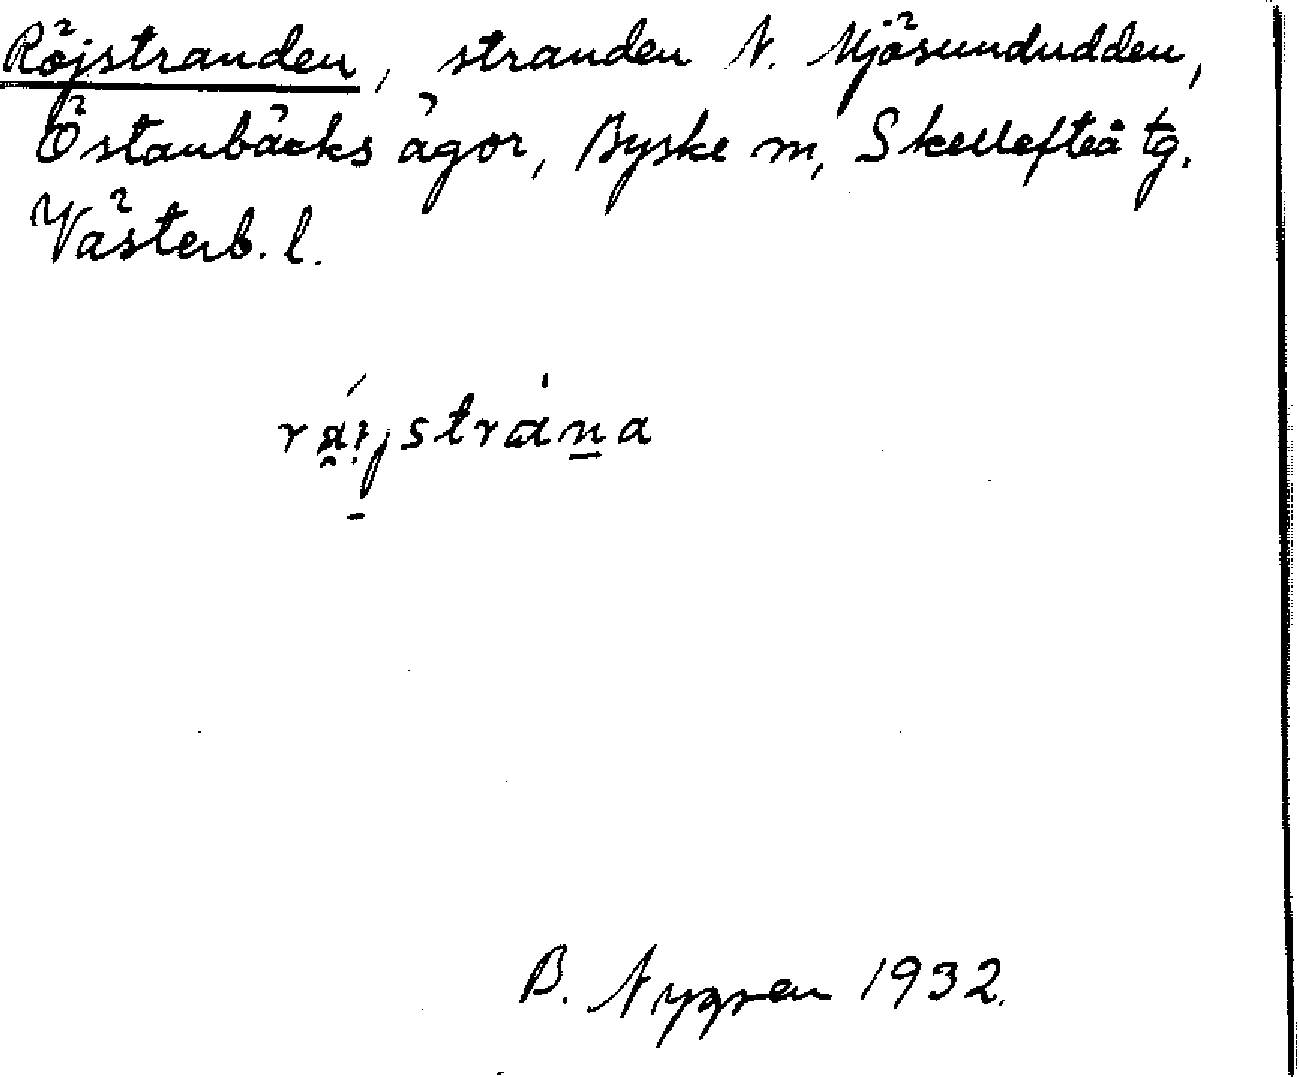 Röjstranden, stranden N. Mjösundudden,
Östanbäcks ägor, Byske sn, Skellefteå tg.
Västerb. l.
B. Nygren 1932.